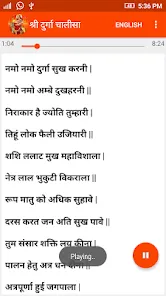 5:36 PM
श्री दुर्गा चालीसा
ENGLISH
1:04
8:24
नमो नमो दुर्गा सुख करनी |
नमो नमो अम्बे दुखहरनी ||
निराकार है ज्योति तुम्हारी |
तिहूं लोक फैली उजियारी ||
शशि ललाट मुख महाविशाला |
नेत्र लाल भुकुटी विकराला ||
रूप मातु को अधिक सुहावे |
दरस करत जन अति सुख पावे ||
तुम संसार शक्ति लय कीना |
पालन हेतु अन्न धन
Playing..
अन्नपूर्णा हुई जगपाला |